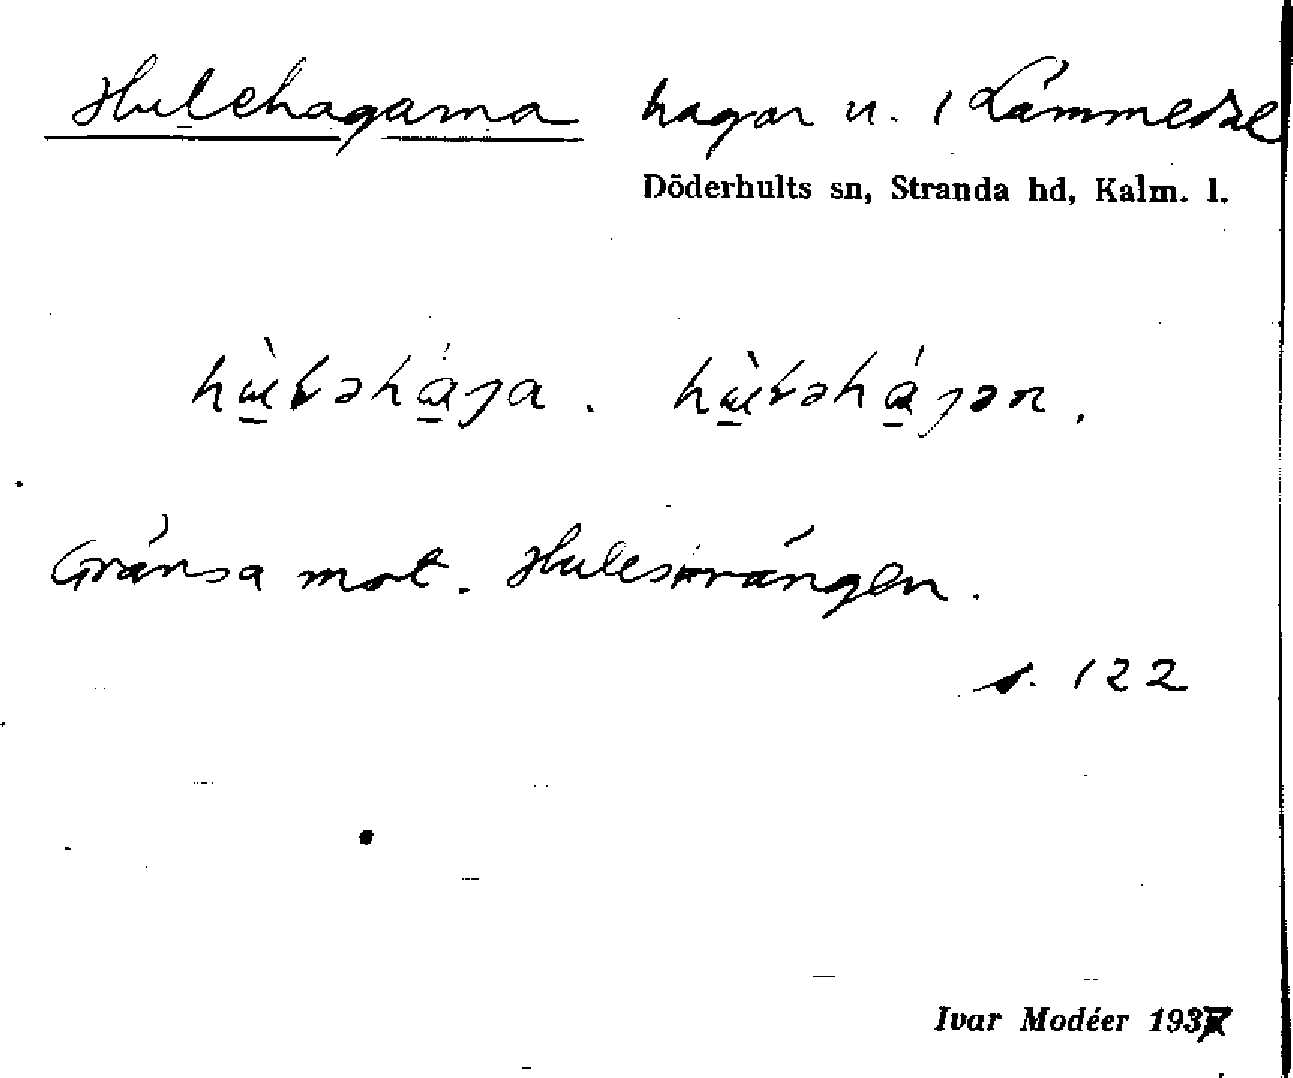 Hulehagarna hagar u. Lämmedal
Döderhults sn, Stranda hd, Kalm. l.
Gränsa mot. Hulesmrängen.
s. 122
Ivar Modéer 1937